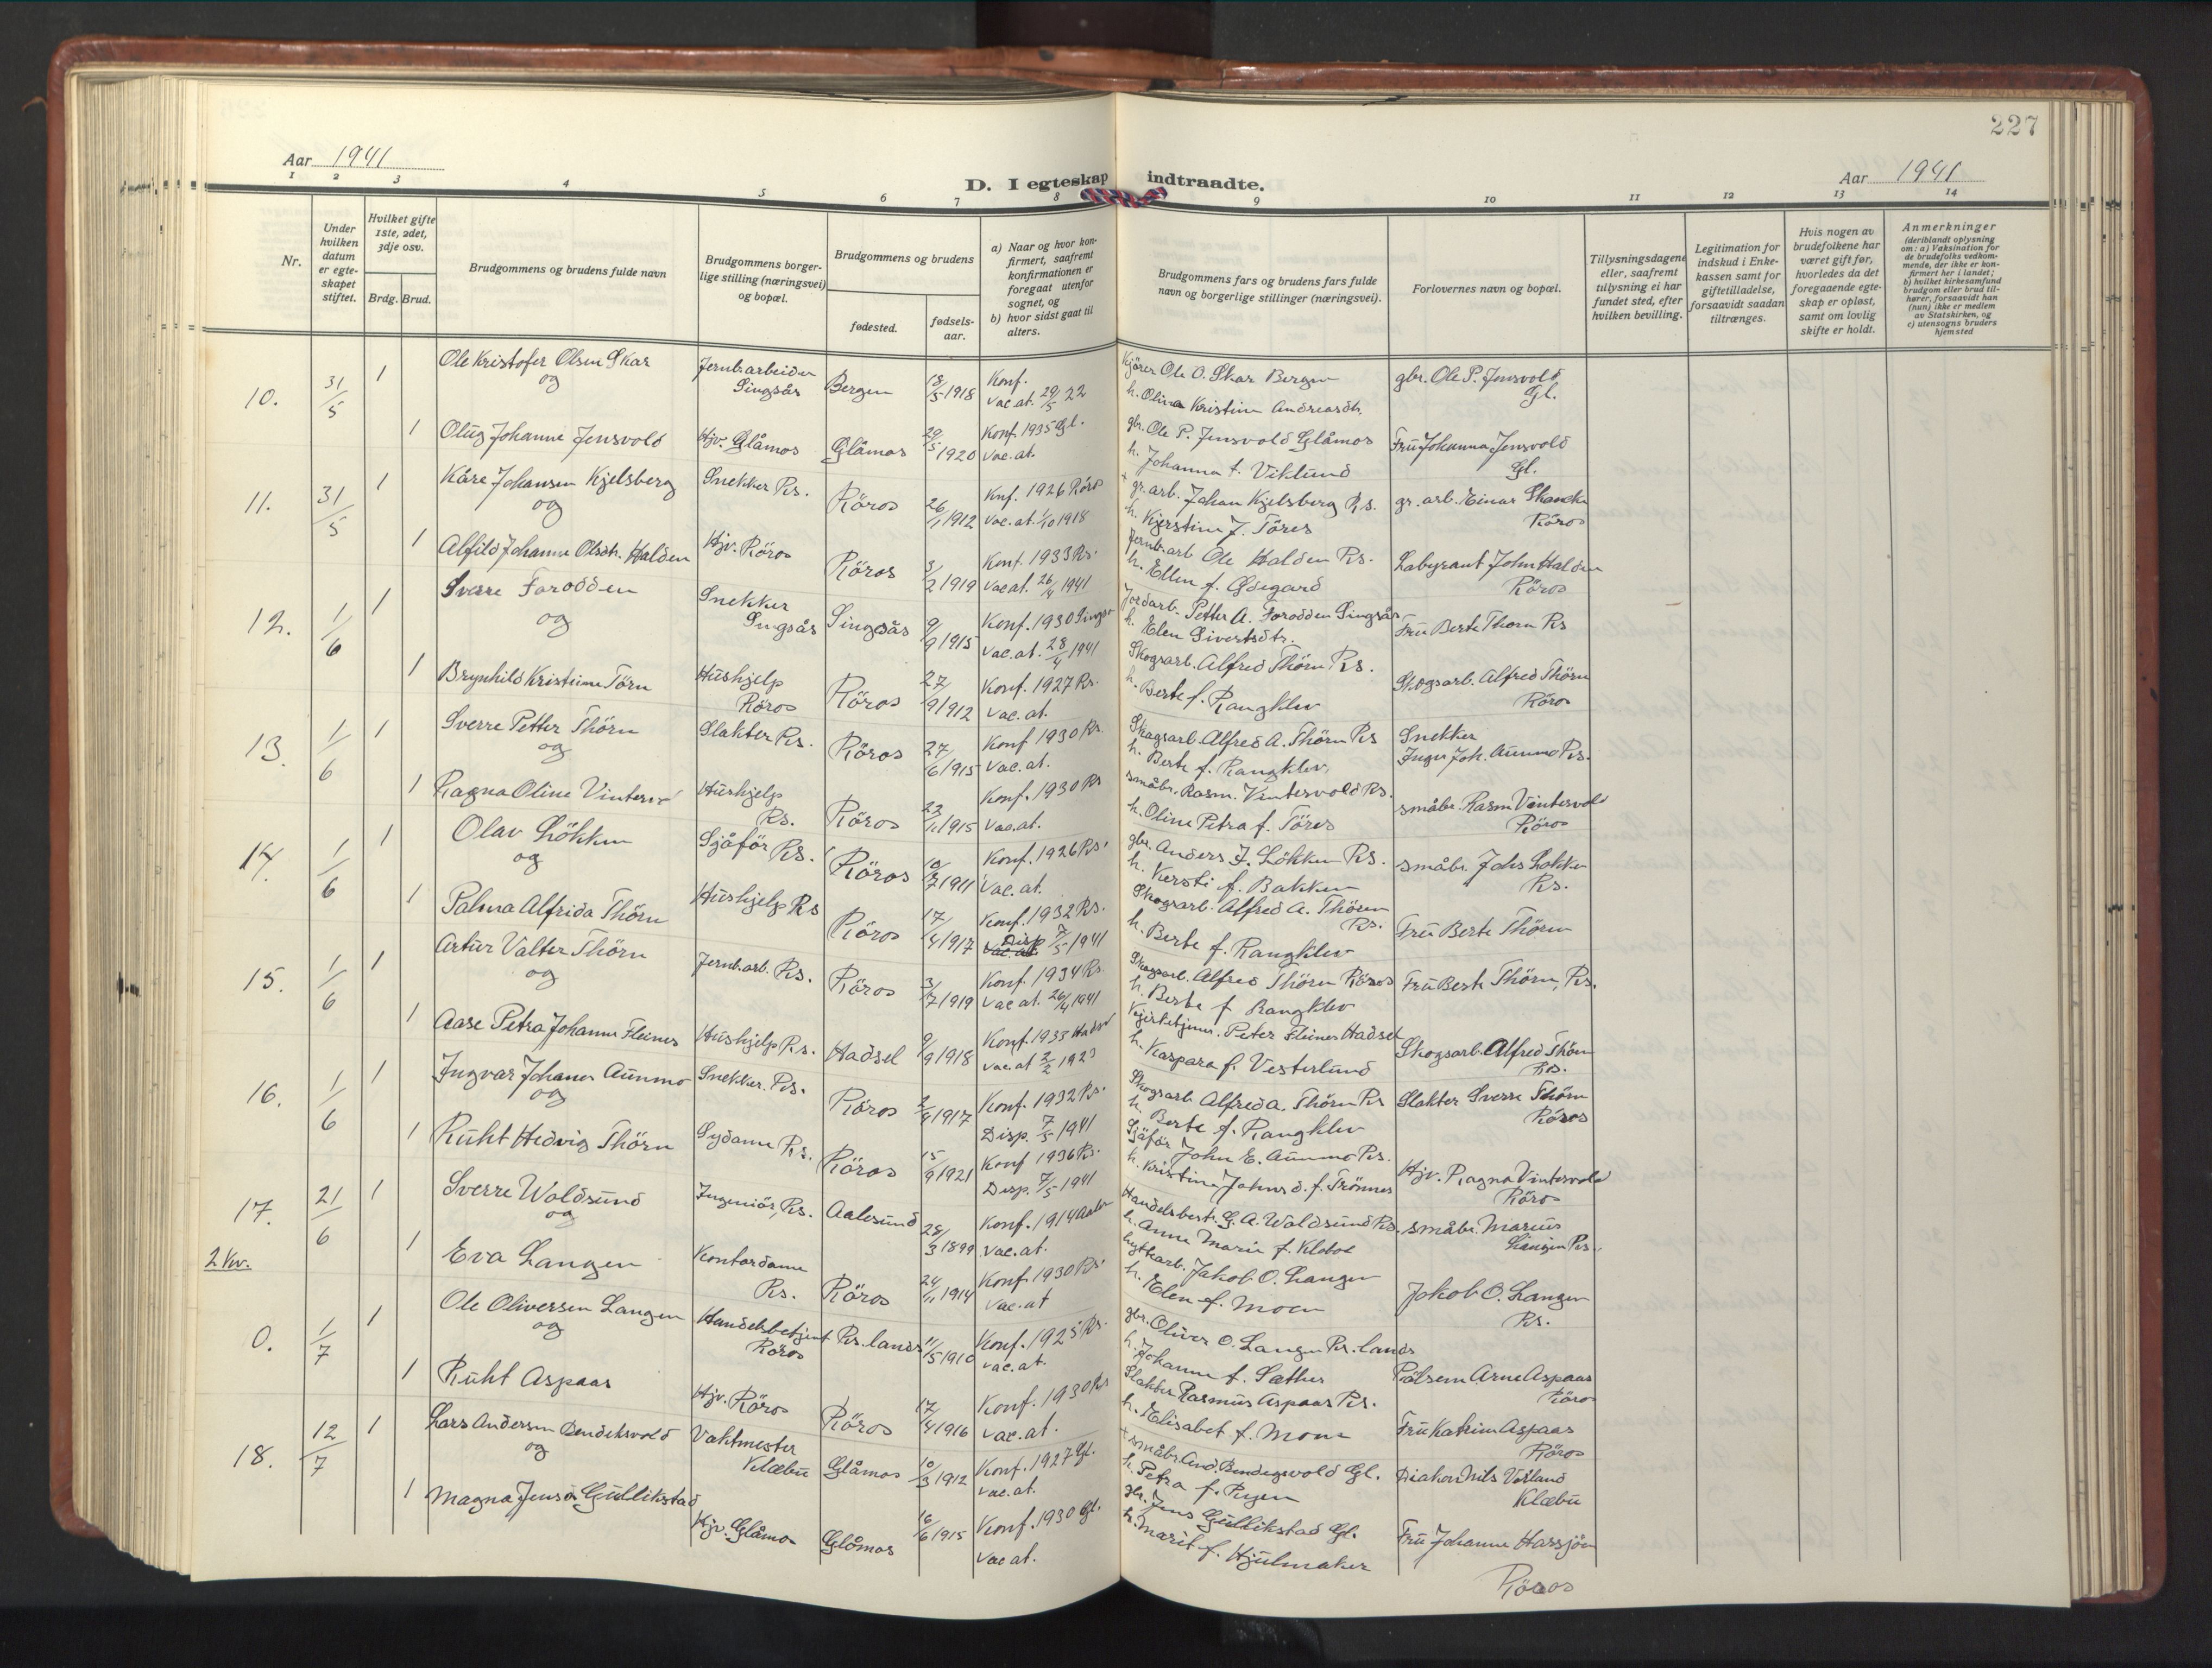 227
Aar 1941
D. I egteskap indtraadte.
Aar 1941
1 2 3 4 5 6 7 8 9 10 11 12 13 14
Nr.
Under hvilken datum er egteskapet stiftet.
Hvilket gifte 1ste, 2det, 3dje osv.
Brdg. Brud.
Brudgommens og brudens fulde navn
Brudgommens borgerlige stilling (næringsvei) og bopæl.
Brudgommens og brudens
fødested.
fødselsaar.
a) Naar og hvor konfirmert, saafremt konfirmationen er foregaat utenfor sognet, og
b) hvor sidst gaat til alters.
Brudgommens fars og brudens fars fulde navn og borgerlige stillinger (næringsvei).
Forlovernes navn og bopæl.
Tillysningsdagene eller, saafremt tillysning ei har fundet sted, efter hvilken bevilling.
Legitimation for indskud i Enkekassen samt for giftetilladelse, forsaavidt saadan tiltrænges.
Hvis nogen av brudefolkene har været gift før, hvorledes da det foregaaende egteskap er opløst, samt om lovlig skifte er holdt.
Anmerkninger
(deriblandt oplysning om: a) Vaksination for de brudefolks vedkommende, der ikke er konfirmert her i landet; b) hvilket kirkesamfund brudgom eller brud tilhører, forsaavidt han (hun) ikke er medlem av Statskirken, og c) utensogns bruders hjemsted
10. 31/5 1 Ole Kristofer Olsen Skar og Jernb.arbeider Singsås Bergen 18/5 1918 Konf. Vac.at. 29/5 22 Kjører Ole O. Skar Bergen h. Olina Kristine Andreasdtr. gbr. Ole P. Jensvold Gl.
1 Olug Johanne Jensvold Hjv. Glåmos Glåmos 29/5 1920 Konf. 1935 Gl. Vac.at. gbr. Ole P. Jensvold Glåmos h. Johanna f. Viklund Fru Johanna Jensvold Gl.
11. 31/5 1 Kåre Johansen Kjelsberg og Snekker Rs. Röros 26/11 1912 Knf. 1926 Röros Vac.at. 1/10 1918 + gr.arb. Johan Kjelsberg Rs. h. Kjerstine J. Töres gr.arb. Einar Skancke Röros
1 Alfild Johanne Olsdtr. Halden Hjv. Röros Röros 3/2 1919 Konf. 1933 Rs. Vac.at. 26/4 1941 Jernb.arb Ole Halden Rs. h. Ellen f. Ödegard Labyrant John Halden Röros
12. 1/6 1 Sverre Forodden og Snekker Singsås Singsås 9/9 1915 Konf. 1930 Singsås Vac.at. 28/4 1941 Jordarb. Petter A. Forodden Singsås h. Elen Sivertsdtr. Fru Berte Thorn Rs
1 Brynhild Kristine Törn Hushjelp Röros Röros 27/9 1912 Konf. 1927 Rs. Vac.at. Skogsarb. Alfred Thörn Rs. h. Berte f. Rangklev Skogsarb. Alfred Thörn Röros
13. 1/6 1 Sverre Petter Thörn og Slakter Rs. Röros 27/6 1915 Konf 1930 Rs. Vac.at. Skogsarb. Alfred A. Thörn Rs h. Berte f. Rangklev Snekker Ingv. Joh. Aunmo Rs.
1 Ragna Oline Vintervold Hushjelp Rs. Röros 23/11 1915 Konf. 1930 Rs Vac.at. småbr. Rasm. Vintervold Rs. h. Oline Petra f. Töres småbr. Rasm Vintervold Röros
14. 1/6 1 Olav Lökken og Sjåför Rs. Röros 10/7 1911 Konf. 1926 Rs. Vac.at. gbr. Anders J. Lökken Rs. h. Kersti f. Bakken småbr. Johs Lokken Rs.
1 Palma Alfrida Thörn Hushjelp Rs Röros 17/4 1917 Konf. 1932 Rs. Vac.at. Disp 7/5 1941 Skogsarb. Alfred A. Thören Rs. h. Berte f. Rangklev Fru Berte Thörn
15. 1/6 1 Artur Valter Thörn og Jernb.arb. Rs. Röros 3/7 1919 Konf. 1934 Rs. Vac.at. 26/4 1941 Skogsarb. Alfred Thörn Röros h. Berte f Rangklev Fru Berte Thörn, Rs.
1 Aase Petra Johanne Fleines Hushjelp Rs. Hadsel 9/9 1918 Konf. 1933 Hadsel Vac.at 2/2 1923 Kirketjener. Peter Fleines Hadsel h. Kaspara f. Vesterlund Skogsarb. Alfred Thörn Rs.
16. 1/6 1 Ingvar Johanes Aunmo og Snekker. Rs. Röros 2/4 1917 Konf. 1932 Rs. Disp. 7/5 1941 Skogsarb. Alfred A. Thörn Rs h. Berte f. Rangklev Slakter Sverre Thörn Röros
1 Ruht Hedvig Thörn Sydame Rs. Röros 15/9 1921 Konf 1936 Rs. Disp. 7/5 1941 Sjåför John E. Aunmo Rs. h. Kristine Johnsd. f. Trönnes Hjv. Ragna Vintervold Röros
17. 21/6 1 Sverre Waldsund og Ingeniör, Rs. Aalesund 28/3 1899 Konf. 1914 Aalesu Vac.at. Handelsbest. G. A. Waldsund Rs. h. Anne Marie f. Kleboe småbr. Marius Langen Rs.
2 Kv.
1 Eva Langen Kontordame Rs. Röros 24/11 1914 Konf. 1930 Rs. Vac.at hyttearb. Jakob O. Langen h. Elen f. Moen Jokob O. Langen Rs.
0. 1/7 1 Ole Oliversen Langen og Handelsbetjent Röros Rs. lands 11/5 1910 Konf. 1925 Rs. Vac.at. gbr. Oliver O. Langen Rs. lands h. Johanne f. Sæther Pölsem. Arne Aspaas Röros
1 Ruht Aspaas Hjv. Röros Röros 17/4 1916 Konf. 1930 Rs Vac.at. Slakter Rasmus Aspaas Rs. h. Elisabet f. Moen Fru Katrine Aspaas Röros
18. 12/7 1 Lars Andersen Bendeksvold og Vaktmester Klæbu Glåmos 10/3 1912 Konf. 1927 Gl. Vac.at. + småbr. And. Bendegsvold Gl. h. Petra f. Ryen Diakon Nils Vårland Klæbu
1 Magna Jensd. Gullikstad Hjv. Glåmos Glåmos 16/6 1915 Konf. 1930 Gl. Vac at. gbr. Jens Gullikstad Gl. h. Marit f. Hjulmaker Fru Johanne Harsjöen Röros